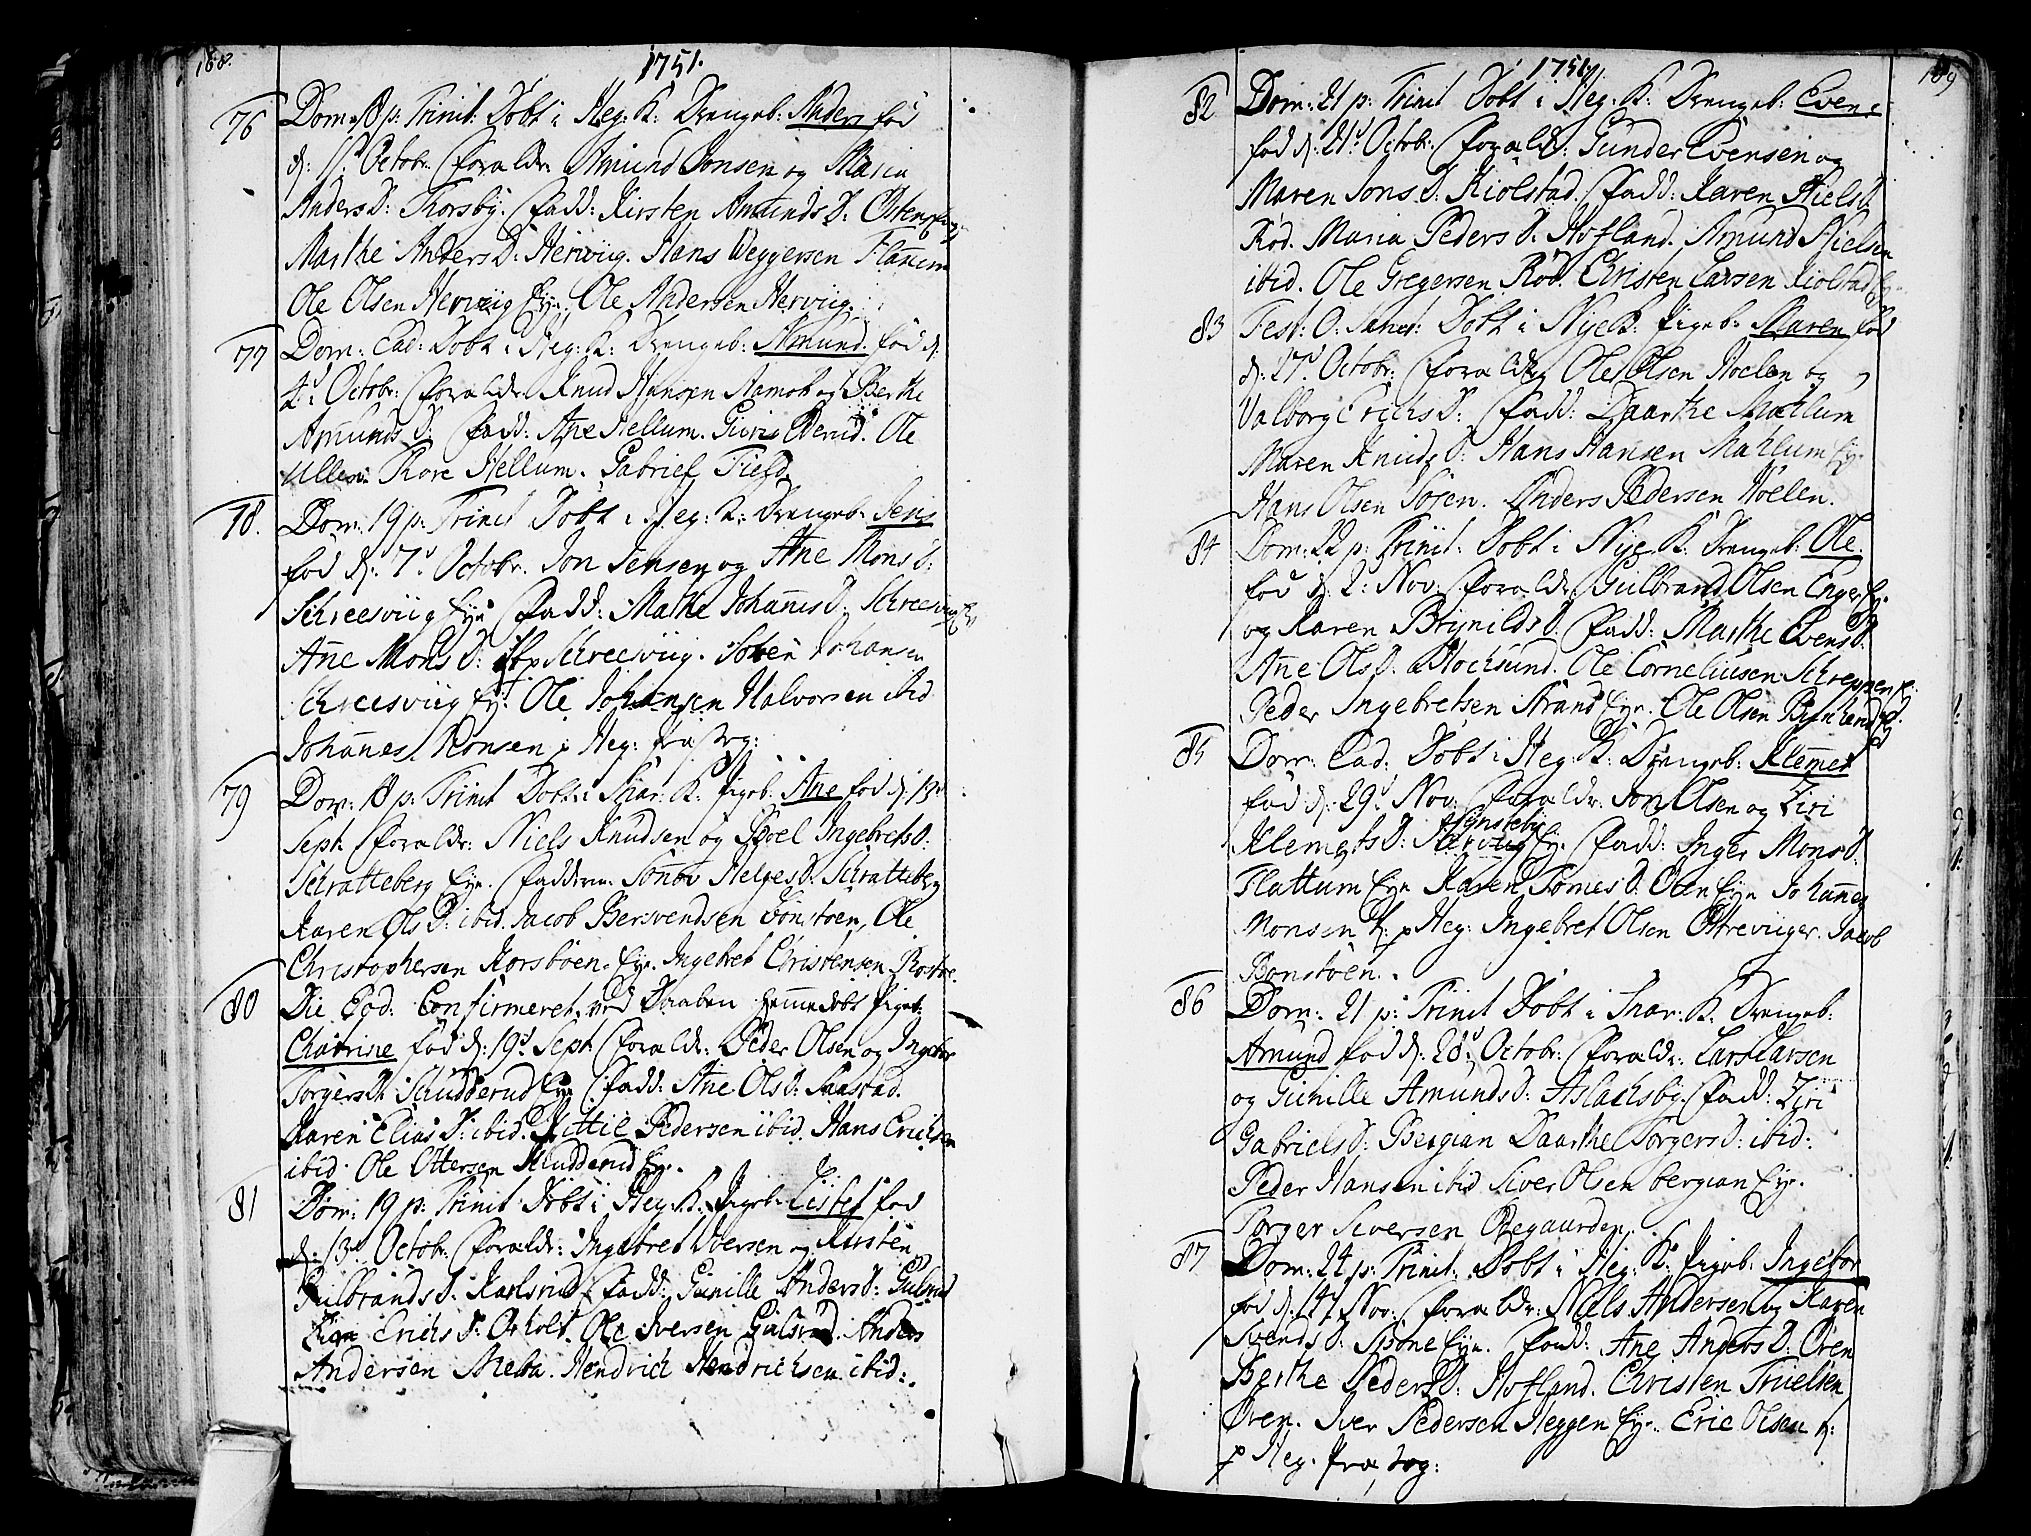 188.
1751.
76 Dom: 18 p: Trinit: Döbt i Heg: K: Drengeb: Anders fød
d: 1d Octobr: Foraeldr: Amund Jonsen og Maria
Anders D: Thorsby. Fadd: Kirsten Amunds D: Østen
Marthe Anders D: Herviig. Hans Veggersen Flannum
Ole Olsen Herviig Eye. Ole Andersen Herviig.
77 Dom: Ead: Döbt i Heg: K: Drengeb: Amund. fød d:
4d Octobr: Foraeldr: Knud Hansen Ramoh og Berthe
Amunds D: Fadd: Ane Hellum. Guri Ederud. Ole
Ullern: Thore Hellum. Gabriel Field.
78. Dom: 19 p: Trinit Döbt i Heg: K: Drengeb: Jens
fød d: 7d Octobr: Jon Jensen og Ane Mons D:
Schreesviig Eye Fadd: Mathe Johannes D: Schreesviig Ey
Anne Mons D: Schreesviig. Soven Johansen
Schreesviig Ey. Ole Johansen Halvorsen ibid
Johannes Monsen i Heg: præstog:
79 Dom: 18 p: Trinit Döbt i Snar: K: Pigeb: Ane fød d: 13d
Sept: Foraeldr: Niels Knudsen og Boel Ingebrets D:
Schratteberg Eye. Faddere: Sønov Helges D: Schratteberg
Karen Ols D: ibid. Jacob Bersvendsen Bonstøen, Ole
Christophersen Korsbøen. Eye. Ingebret Christensen Rostøe.
80 Die Eod: Confirmeret ved Daaben hemedöbt Pigeb:
Chatrine fød d: 19d Sept: Foraeldr: Peder Olsen og Ingebor
Torgers D: Skudderud Eye Fadd: Ane Ols D: Saastad.
Karen Elias D: ibid. Kittil Pedersen ibid. Hans Erichsen
ibid. Ole Ottersen Skudderud Ey.
81 Dom: 19 p: Trinit: Döbt i Heg: K: Pigeb: Lisbet fød
d: 13d Octobr: Foraeldr: Ingebret Iversen og Kirsten
Gulbrands D: Karlsrud Fadd: Gunille Anders D: Gulsrud
Erichs D: Ole Iversen Gulsrud. Anders
Andersen Meha. Hendrich Hendrichsen ibid:
189
1751.
82 Dom: 21 p: Trinit Döbt i Heg: K: Drengeb: Even
fød d: 21d Octobr: Foraeldr: Gunder Evensen og
Maren Jons D: Kiolstad. Fadd: Karen Niels D:
Rød. Maria Peders D: Hofland. Amund Nielsen
ibid. Ole Gregersen Rød. Christen Larsen Kiolstad Ey
83 Fest: O: Sanct: Döbt i Nye K: Pigeb: Maren fød
d: 27d Octobr: Foraeldr: Ole Olsen Moelen og
Valborg Erichs D: Fadd: Daarthe Mæhlum
Maren Knuds D: Hans Hansen Mæhlum Ey.
Hans Olsen Soren. Anders Pedersen Moelen.
84 Dom: 22 p: Trinit: Döbt i Nye K: Drengeb: Ole.
fød d: 2: Nov: Foraeldr: Gulbrand Olsen Enger Ey.
og Karen Brynilds D: Fadd: Marthe Evens D:
Ane Ols D: Stochsund. Ole Corneliusen Schreppen Ey.
Peder Ingebretsen Strand Eye. Ole Olsen Bynland Ey.
85 Dom: Ead: Döbt i Heg: K: Drengeb: Klemmet
fød d: 29d Nov: Foraeldr: Jon Olsen og Ziri
Klemets D: Herviig Ey. Fadd: Inger Mons D:
Flattum Eye Karen Tomes D: Ølen Eye Johannes
Monsen p Heg: Ingebret Olsen Ottreviiger. Jacob
Bonstøen.
86 Dom: 21 p: Trinit Döbt i Snar: K: Drengeb:
Amund fød d: 28d Octobr: Foraeldr: Lars Larsen
og Gunille Amunds D: Aslachsby. Fadd: Ziri
Gabriels D: Bergian Daarthe Torgers D: ibid:
Peder Hansen ibid Siver Olsen bergian Eye.
Torger Siversen Ødegaarden.
87 Dom: 24 p: Trinit: Döbt i Heg: K: Pigeb: Ingebor
fød d: 14d Nov: Foraeldr: Niels Andersen og Karen
Svends D: Spone Eye. Fadd: Ane Anders D: Øren
Berthe Peders D: Hofland. Christen Truelsen
Øren. Iver Pedersen Heggen Eye. Eric Olsen
p Heg. Præstog: